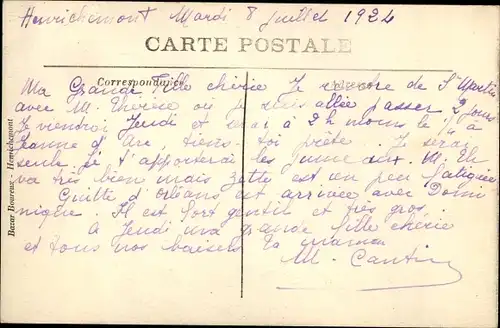 Henrichemont Mardi 8 Juillet 1924
CARTE POSTALE
Correspondance
Ma Grande Fille chérie Je rentre de St Martin
avec M. Thérèse où je suis allée passer 2 jours
Je viendrai Jeudi et serai à 2 h moins le 1/4 à
Jeanne d'Arc, tiens-toi prête. Je serai
seule je t'apporterai les jumeaux. M. El.
va très bien mais Zette est un peu fatiguée
Guitte d'Orléans est arrivée avec Domi
nique. Il est fort gentil et très gros.
à Jeudi ma grande fille chérie
et tous nos baisers ta maman
M. Cantin
Bazar Boureux - Henrichemont